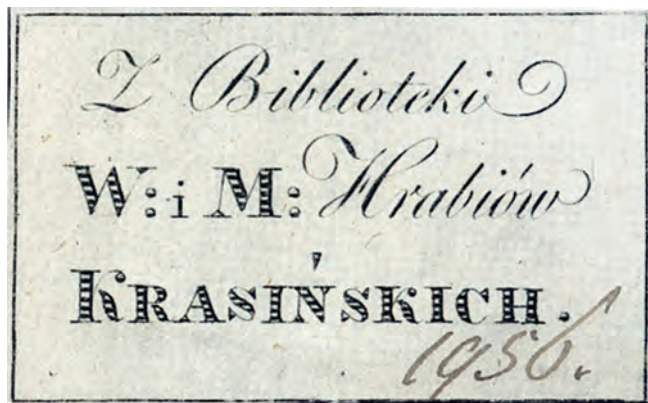 Z Biblioteki
W: i M: Hrabiów
KRASIŃSKICH.
1956.